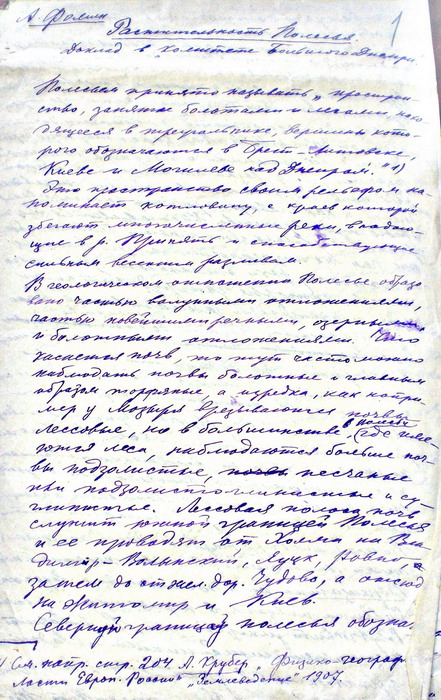 А. Фомин
1
Растительность Полесья.
Доклад в комитете Большого Днепра.
Полесьем принято называть „простран-
ство, занятое болотами и лесами, нахо
дящееся в треугольнике, вершины кото-
рого обозначаются в Брест-Литовске,
Киеве и Могилеве над Днепром." 1)
Это пространство своим рельефом на
поминает котловину, с краев которой
сбегают многочисленные реки, впадаю-
щие в р. Припять и способствующие
сильным весенним разливам.
В геологическом отношении Полесье образо
вано частью валунными отложениями,
частью новейшими речными, озерными
и болотными отложениями. Что
касается почв, то тут часто можно
наблюдать почвы болотные и главным
образом торфяные, а изредка, как напри-
мер у Мозыря врезываются почвы
лессовые, но в большинстве, в Полесьи (где име-
ются леса, наблюдаются больше поч-
вы подзолистые, песчаные
или подзолисто глинистые и су-
глинистые. Лессовая полоса почв
служит южной границей Полесья
и ее проводят от Холма на Вла
димир-Волынский, Луцк, Ровно, а
затем до ст. жел. дор. Чудово, а отсюд
на Житомир и Киев.
Северной границей полесья обозна-
1) См. напр. стр. 204 А. Крубер „Физико-географ
ласти Европ. России" „Землеведение" 1907.